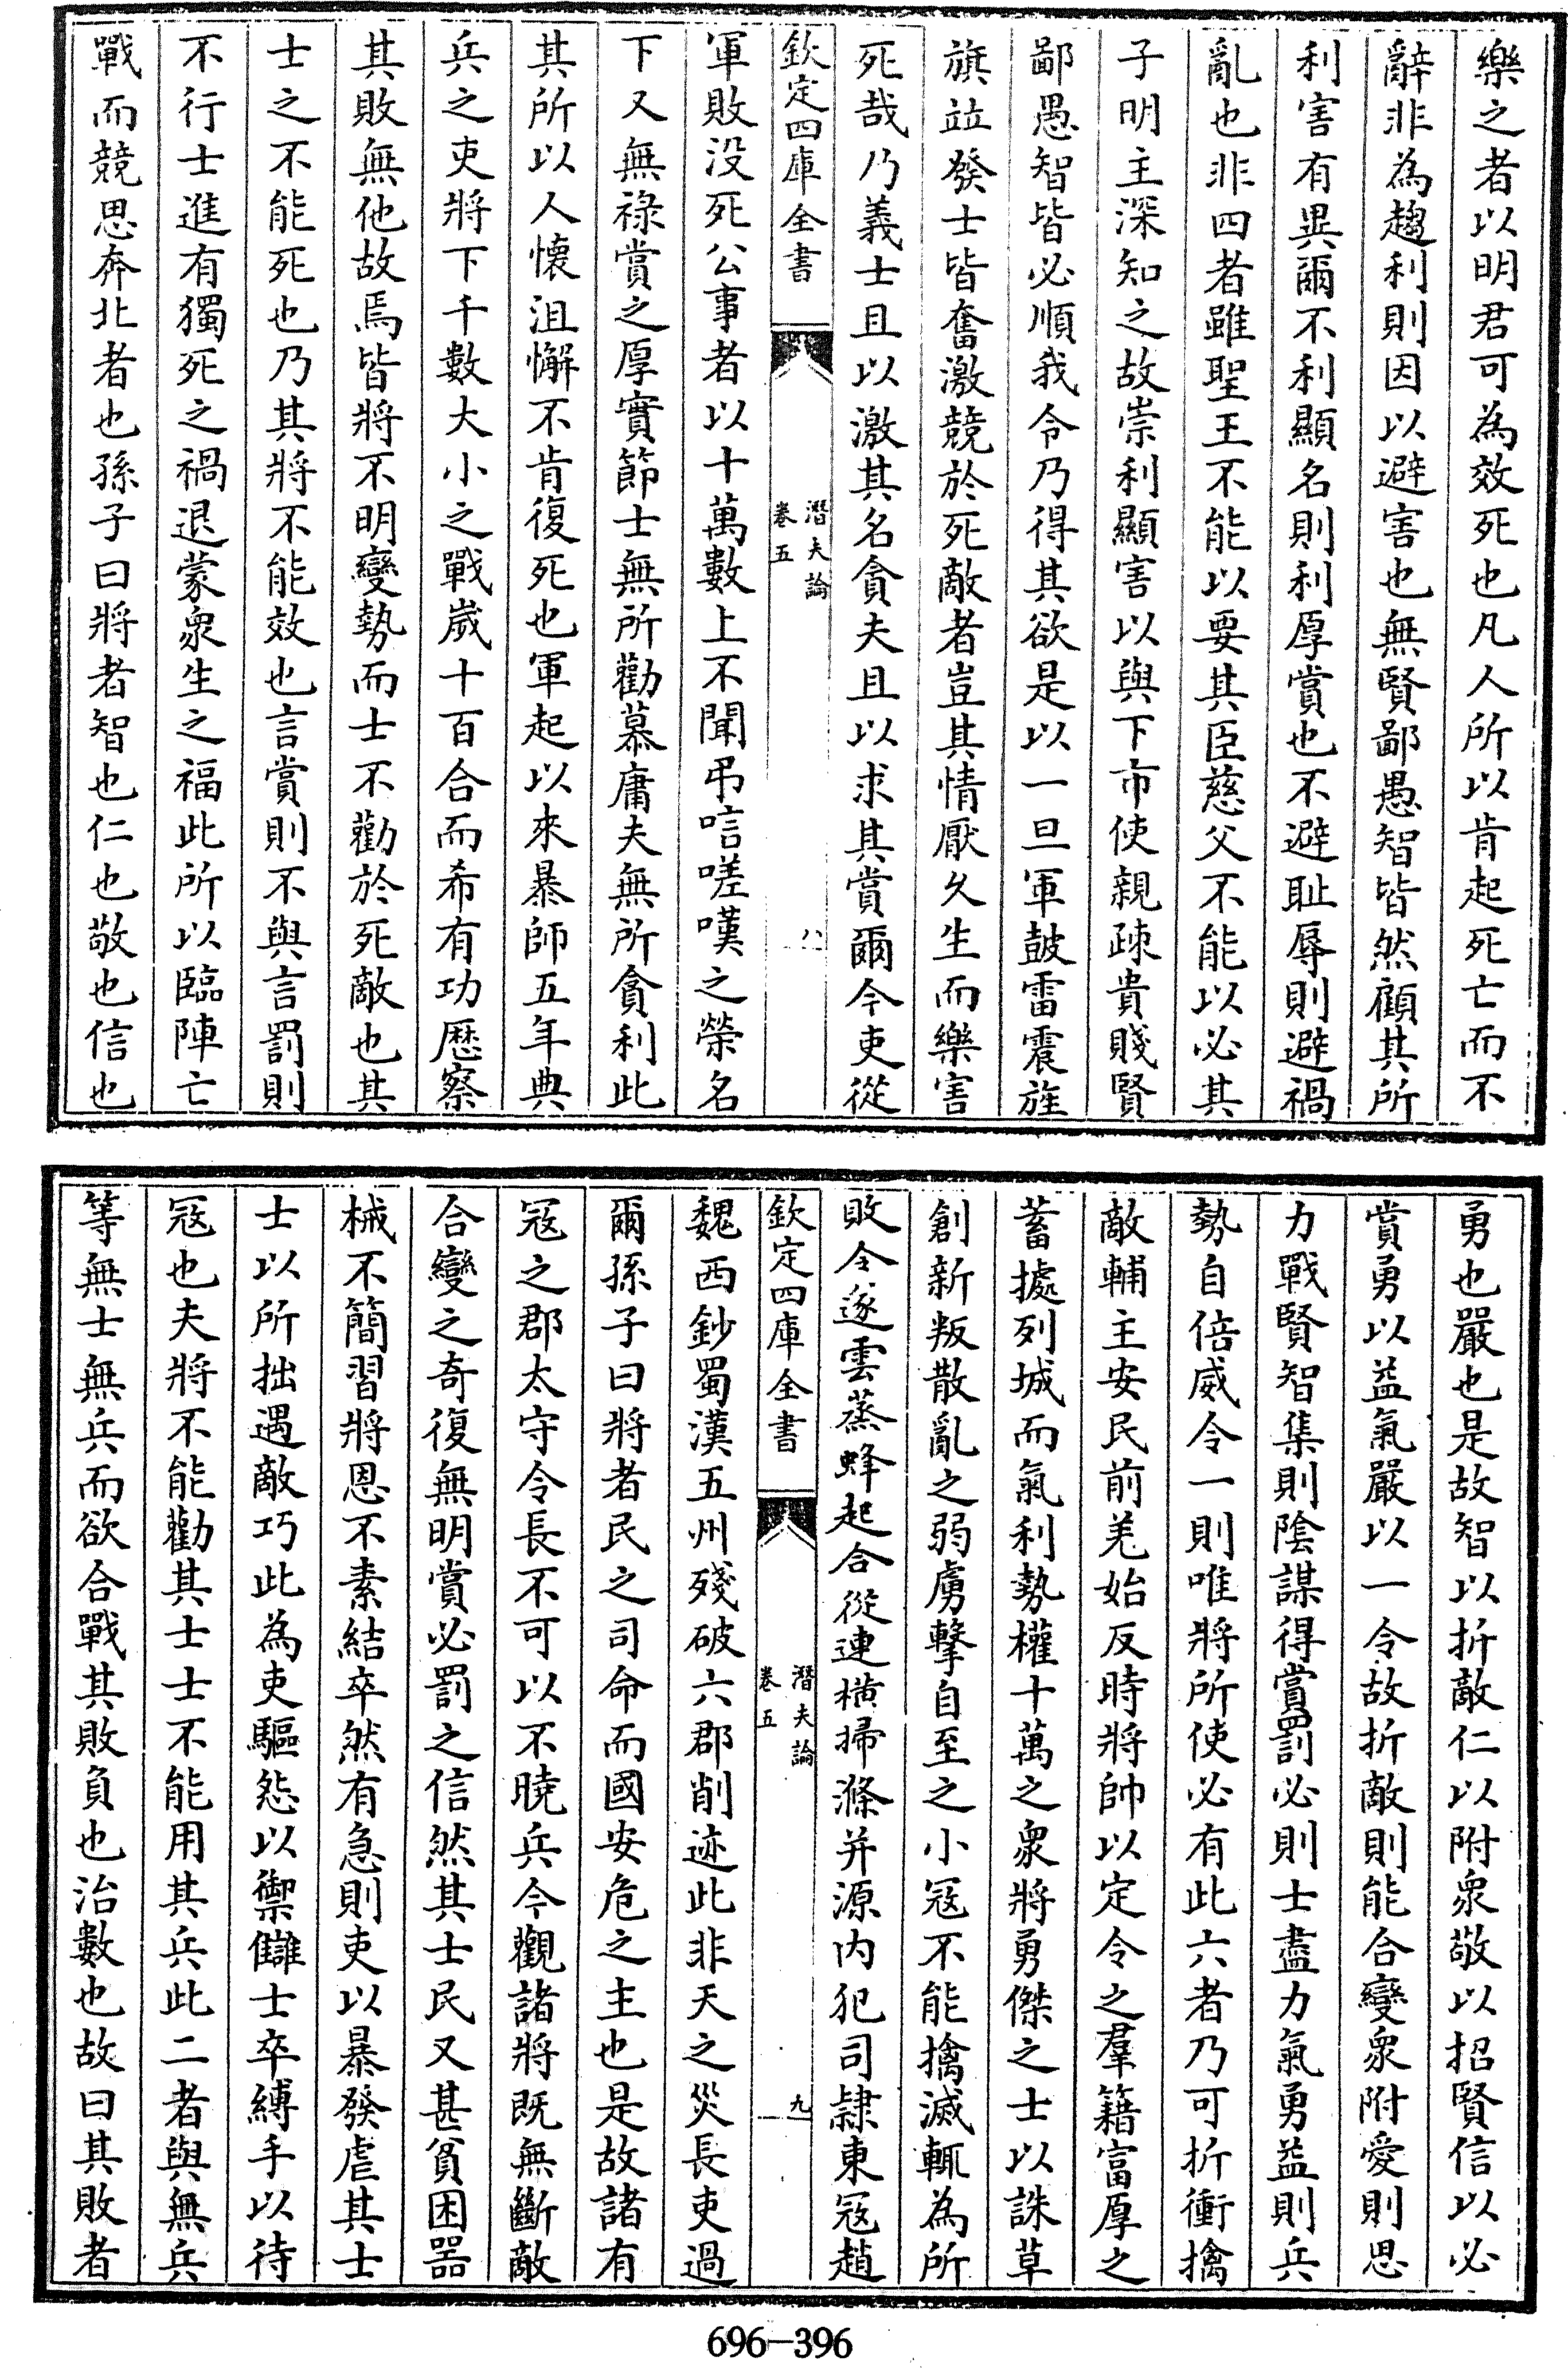 樂之者以明君可為效死也凡人所以肯起死亡而不
辭非為趨利則因以避害也無賢鄙愚智皆然顧其所
利害有異爾不利顯名則利厚賞也不避恥辱則避禍
亂也非四者雖聖王不能以要其臣慈父不能以必其
子明主深知之故崇利顯害以與下市使親疎貴賤賢
鄙愚智皆必順我令乃得其欲是以一旦軍鼓雷震旌
旗竝發士皆奮激競於死敵者豈其情厭久生而樂害
死哉乃義士且以激其名貪夫且以求其賞爾今吏從
欽定四庫全書
潛夫論
卷五
八
軍敗没死公事者以十萬數上不聞弔唁嗟嘆之榮名
下又無祿賞之厚實節士無所勸慕庸夫無所貪利此
其所以人懷沮懈不肯復死也軍起以來暴師五年典
兵之吏將下千數大小之戰嵗十百合而希有功歷察
其敗無他故焉皆將不明變勢而士不勸於死敵也其
士之不能死也乃其將不能效也言賞則不與言罰則
不行士進有獨死之禍退蒙衆生之福此所以臨陣亡
戰而競思奔北者也孫子曰將者智也仁也敬也信也
勇也嚴也是故智以折敵仁以附衆敬以招賢信以必
賞勇以益氣嚴以一令故折敵則能合變衆附愛則思
力戰賢智集則陰謀得賞罰必則士盡力氣勇益則兵
勢自倍威令一則唯將所使必有此六者乃可折衝擒
敵輔主安民前羌始反時將帥以定令之羣籍富厚之
蓄據列城而氣利勢權十萬之衆將勇傑之士以誅草
創新叛散亂之弱虜擊自至之小冦不能擒滅輒為所
敗令遂雲蒸蜂起合從連横掃滌并源内犯司隷東冦趙
欽定四庫全書
潛夫論
卷五
九
魏西鈔蜀漢五州殘破六郡削迹此非天之災長吏過
爾孫子曰將者民之司命而國安危之主也是故諸有
冦之郡太守令長不可以不曉兵今觀諸將既無斷敵
合變之奇復無明賞必罰之信然其士民又甚貧困器
械不簡習將恩不素結卒然有急則吏以暴發虐其士
士以所拙遇敵巧此為吏驅怨以禦讎士卒縛手以待
冦也夫將不能勸其士士不能用其兵此二者與無兵
等無士無兵而欲合戰其敗負也治數也故曰其敗者
696-396